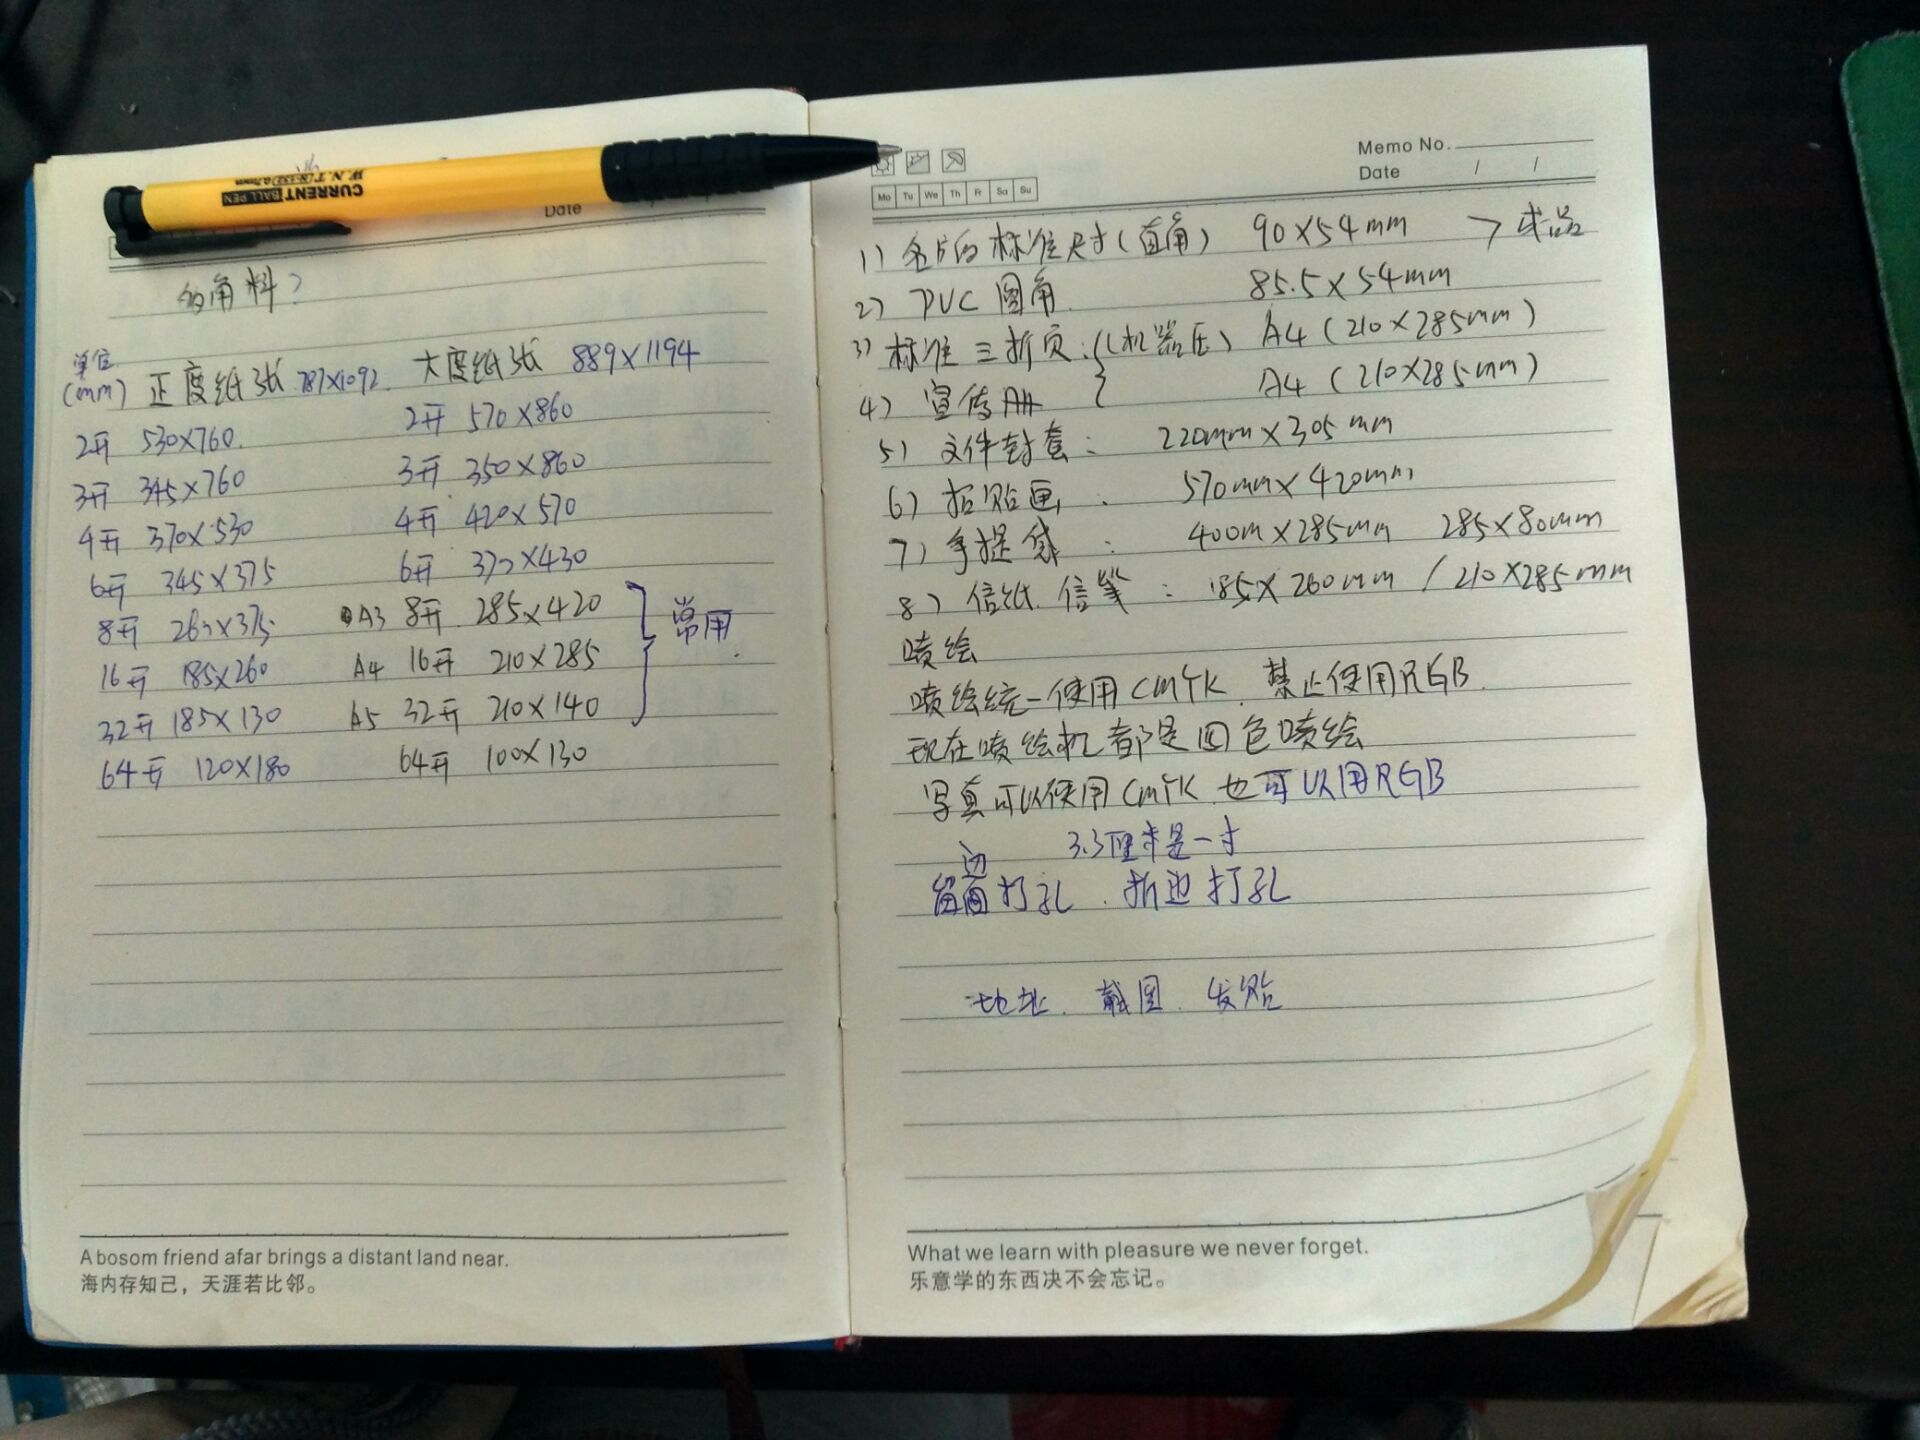 CURRENT
BALL PEN
W.N.T
Date
的角料?
单位
(mm) 正度纸张 787×1092 大度纸张 889×1194
2开 530×760 2开 570×860
3开 345×760 3开 350×860
4开 370×530 4开 420×570
6开 345×375 6开 370×430
8开 260×375 A3 8开 285×420
常用
16开 185×260 A4 16开 210×285
32开 185×130 A5 32开 210×140
64开 120×180 64开 100×130
A bosom friend afar brings a distant land near.
海内存知己，天涯若比邻。
Memo No.
Date / /
Mo Tu We Th Fr Sa Su
1) 名片的标准尺寸(直角) 90×54mm > 成品
2) PVC 圆角 85.5×54mm
3) 标准三折页:(机器压) A4 (210×285mm)
4) 宣传册 A4 (210×285mm)
5) 文件封套: 220mm×305mm
6) 招贴画: 570mm×420mm
7) 手提袋: 400m×285mm 285×80mm
8) 信纸.信笺: 185×260mm / 210×285mm
喷绘
喷绘统一使用CMYK.禁止使用RGB.
现在喷绘机都是四色喷绘
写真可以使用CMYK.也可以用RGB
3.3厘米是一寸
边
留 打孔.折边打孔
地址.截图.发贴
What we learn with pleasure we never forget.
乐意学的东西决不会忘记。